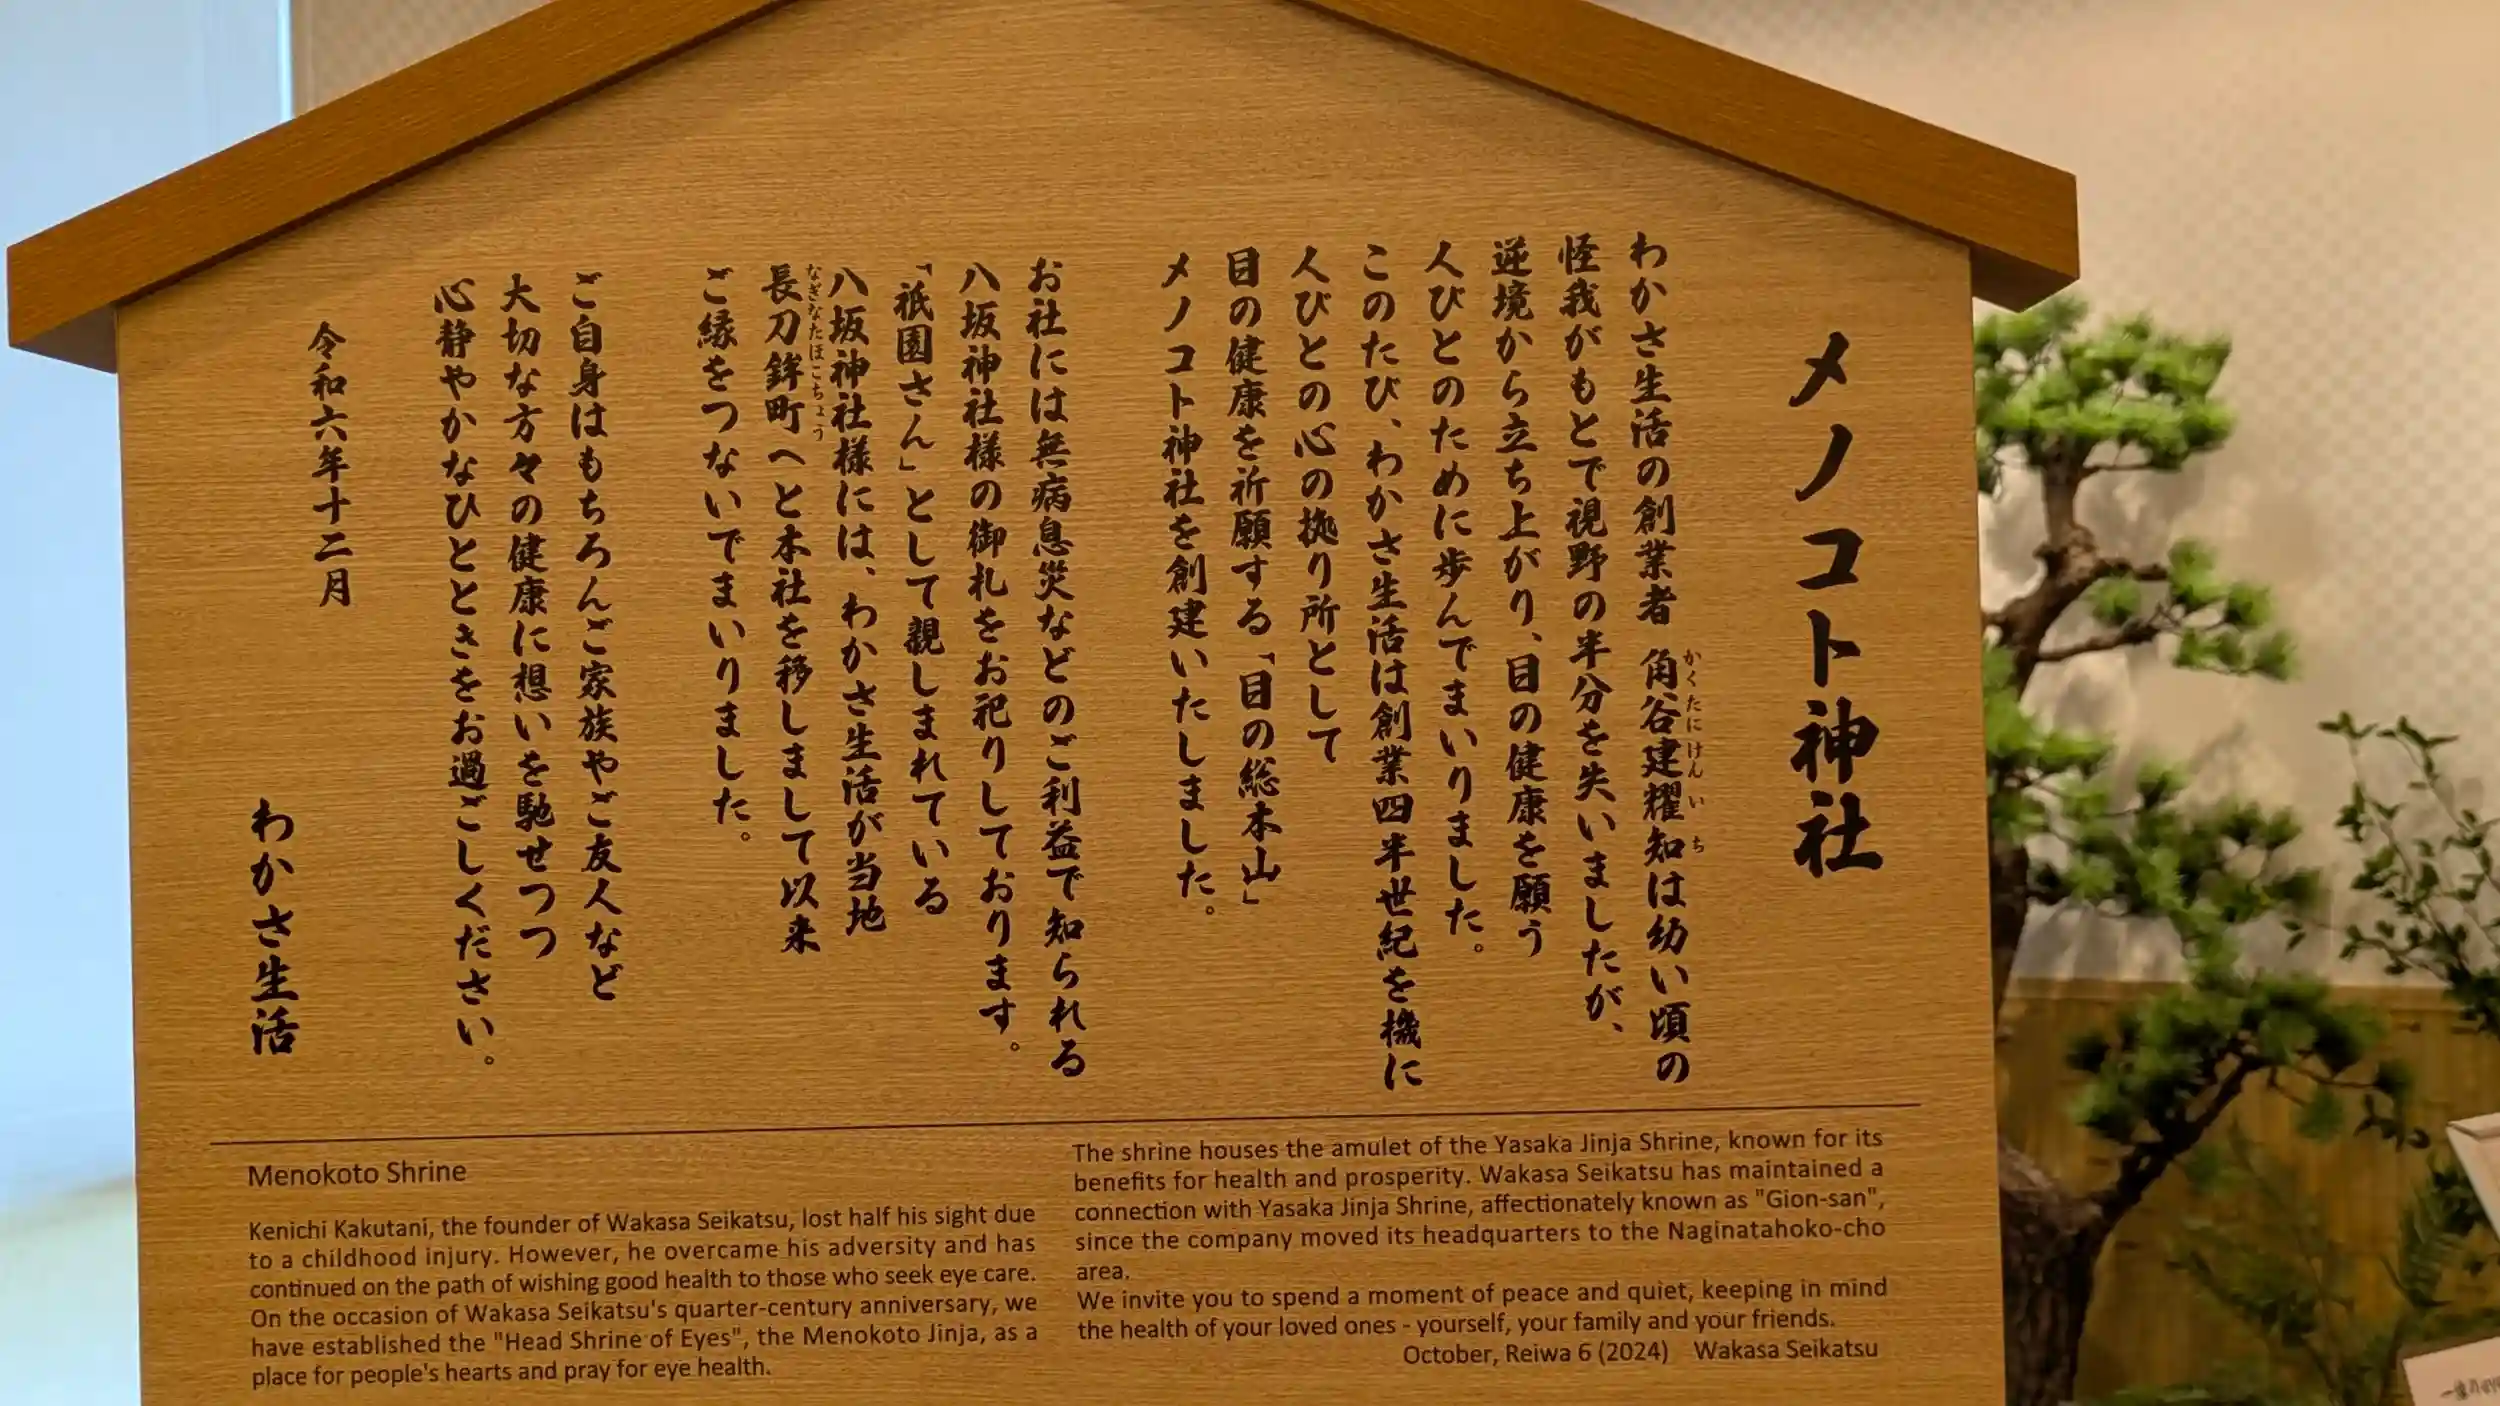 メノコト神社
わかさ生活の創業者 角谷建耀知は幼い頃の
かくたにけんいち
怪我がもとで視野の半分を失いましたが、
逆境から立ち上がり、目の健康を願う
人びとのために歩んでまいりました。
このたび、わかさ生活は創業四半世紀を機に
人びとの心の拠り所として
目の健康を祈願する、「目の総本山」
メノコト神社を創建いたしました。
お社には無病息災などのご利益で知られる
八坂神社様の御札をお祀りしております。
「祇園さん」として親しまれている
八坂神社様には、わかさ生活が当地
長刀鉾町へと本社を移しまして以来
なぎなたほこちょう
ご縁をつないでまいりました。
ご自身はもちろんご家族やご友人など
大切な方々の健康に想いを馳せつつ
心静やかなひとときをお過ごしください。
令和六年十二月
わかさ生活
Menokoto Shrine
Kenichi Kakutani, the founder of Wakasa Seikatsu, lost half his sight due
to a childhood injury. However, he overcame his adversity and has
continued on the path of wishing good health to those who seek eye care.
On the occasion of Wakasa Seikatsu's quarter-century anniversary, we
have established the "Head Shrine of Eyes", the Menokoto Jinja, as a
place for people's hearts and pray for eye health.
The shrine houses the amulet of the Yasaka Jinja Shrine, known for its
benefits for health and prosperity. Wakasa Seikatsu has maintained a
connection with Yasaka Jinja Shrine, affectionately known as "Gion-san",
since the company moved its headquarters to the Naginatahoko-cho
area.
We invite you to spend a moment of peace and quiet, keeping in mind
the health of your loved ones - yourself, your family and your friends.
October, Reiwa 6 (2024) Wakasa Seikatsu